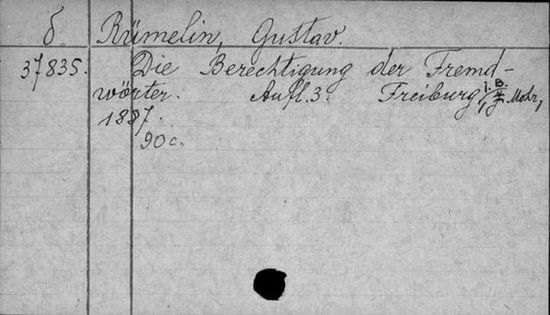 δ Rümelin, Gustav.
37835. Die Berechtigung der Fremd-
wörter. Aufl. 3. Freiburg i. B., Mohr,
1887.
90 c.